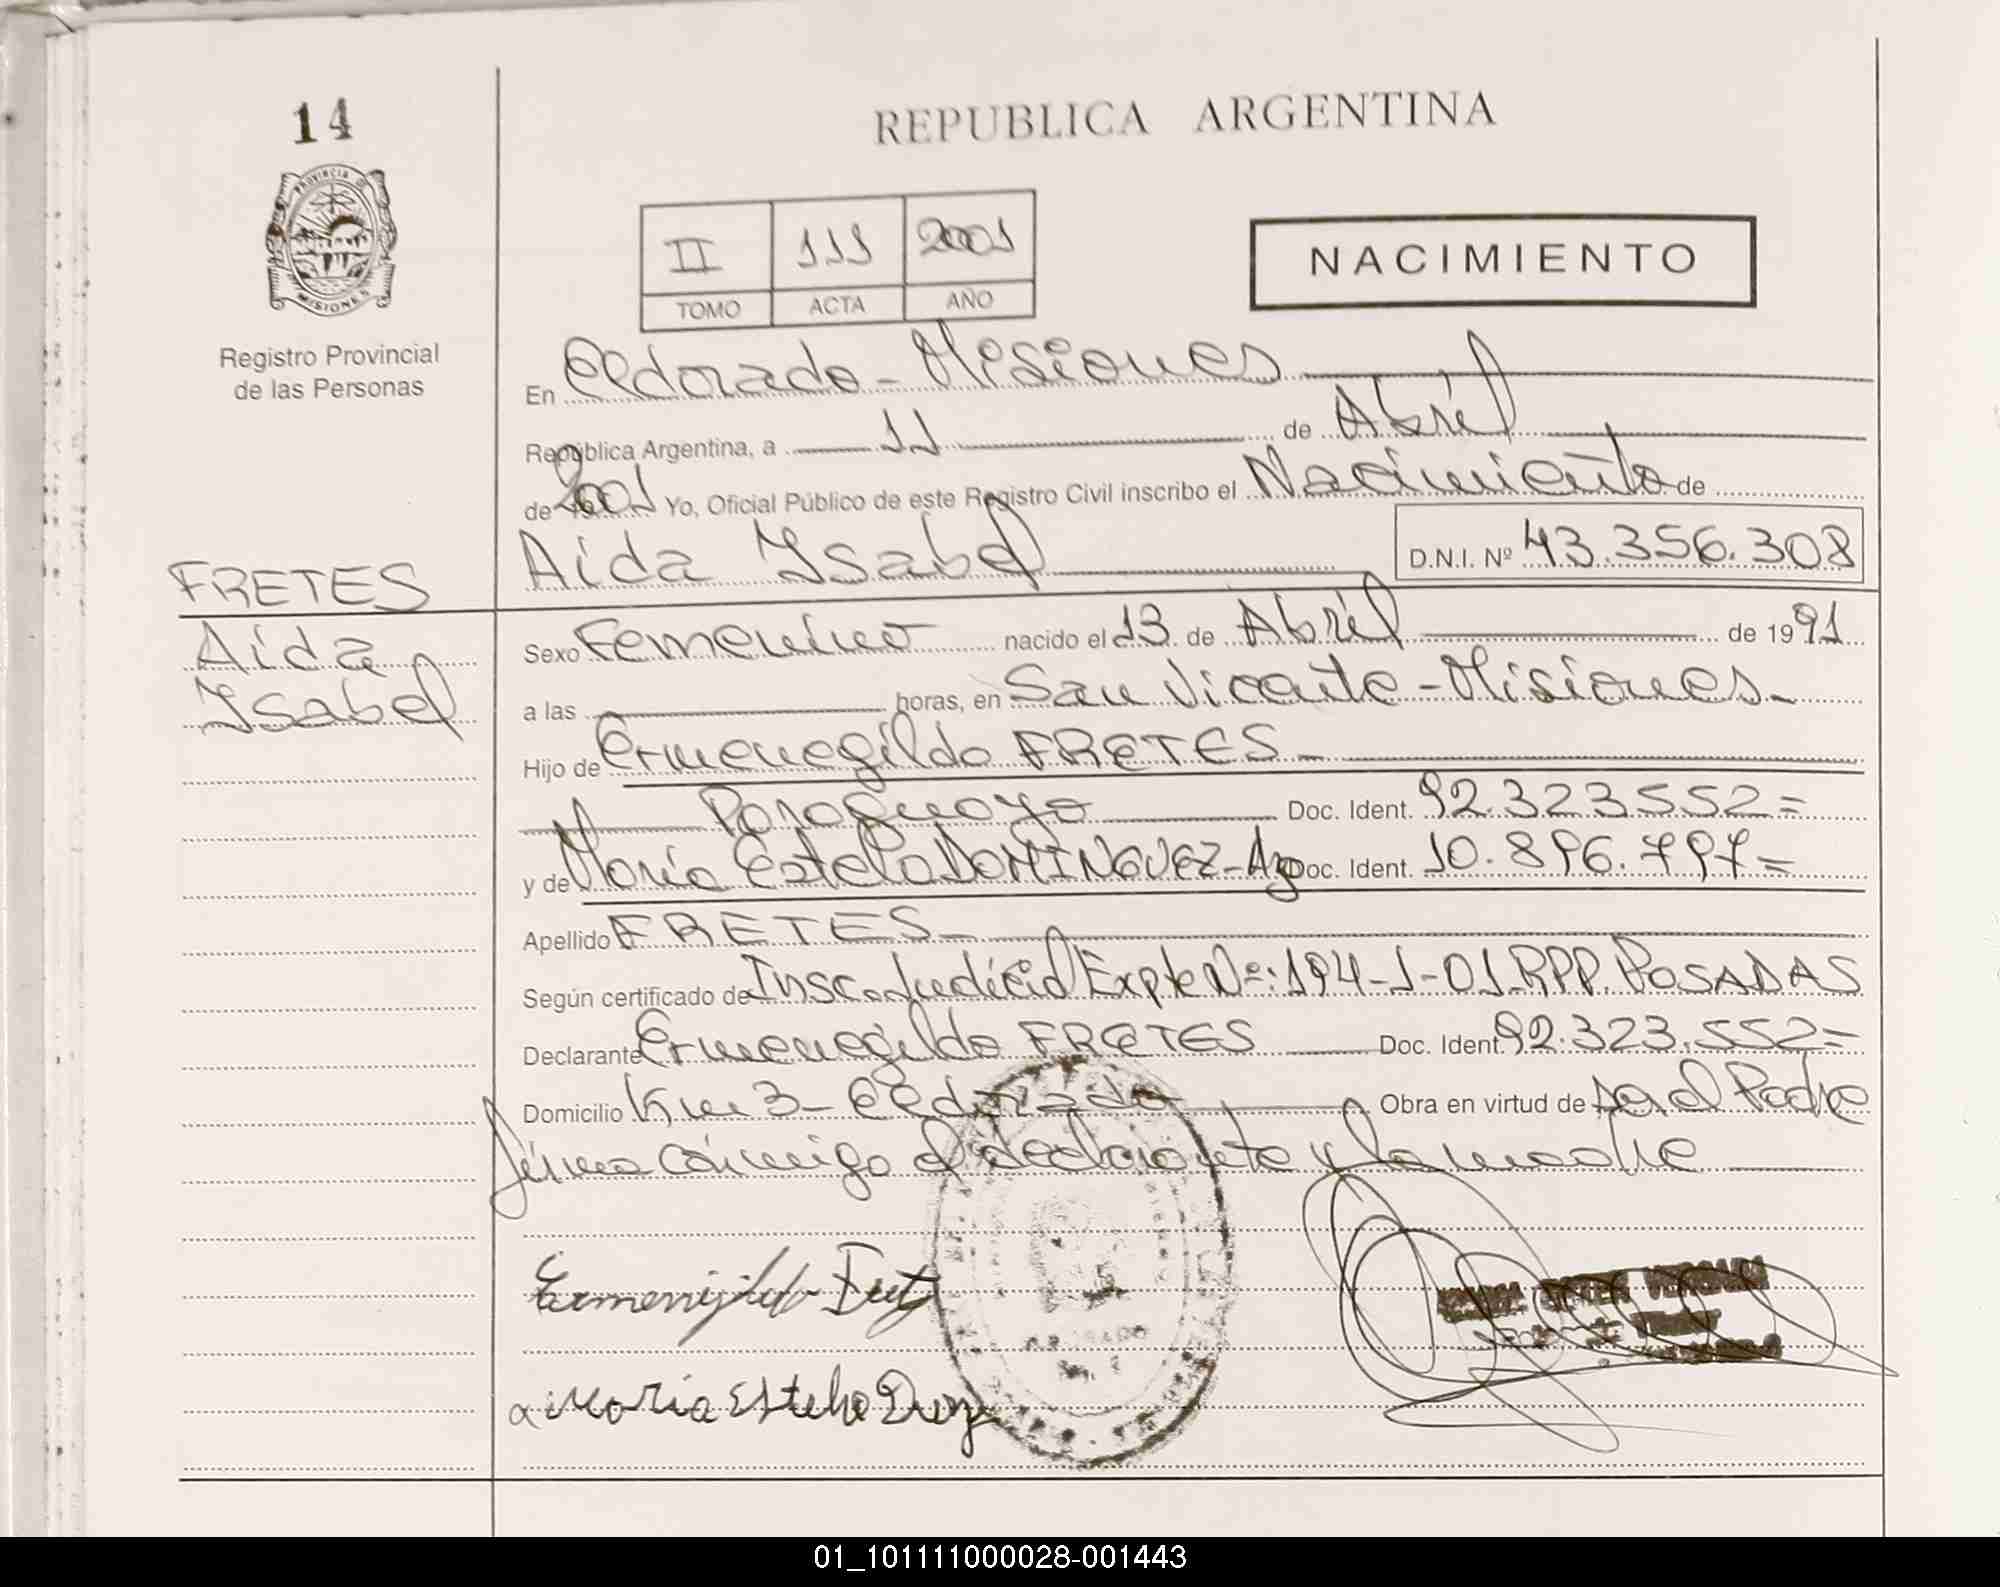 14
REPUBLICA ARGENTINA
PROVINCIA DE
MISIONES
Registro Provincial
de las Personas
II 111 2001
TOMO ACTA AÑO
NACIMIENTO
En Eldorado - Misiones
República Argentina, a 11 de Abril
de 2001 Yo, Oficial Público de este Registro Civil inscribo el Nacimiento de
Aida Ysabel D.N.I. Nº 43.356.308
FRETES
Aida
Ysabel
Sexo Femenino nacido el 13 de Abril de 1991
a las horas, en San Vicente - Misiones -
Hijo de Ermenegildo FRETES -
Paraguayo Doc. Ident. 92.323.552=
y de María Estela DOMINGUEZ - Arg Doc. Ident. 10.896.797=
Apellido FRETES -
Según certificado de Insc. Judicial Expte Nº: 194-1-01 RPP. POSADAS
Declarante Ermenegildo FRETES Doc. Ident. 92.323.552=
Domicilio Km 3 - Eldorado Obra en virtud de ser el Padre
firma cónmigo el declarante y la madre
Ermenigildo
Maria Estela
01_101111000028-001443